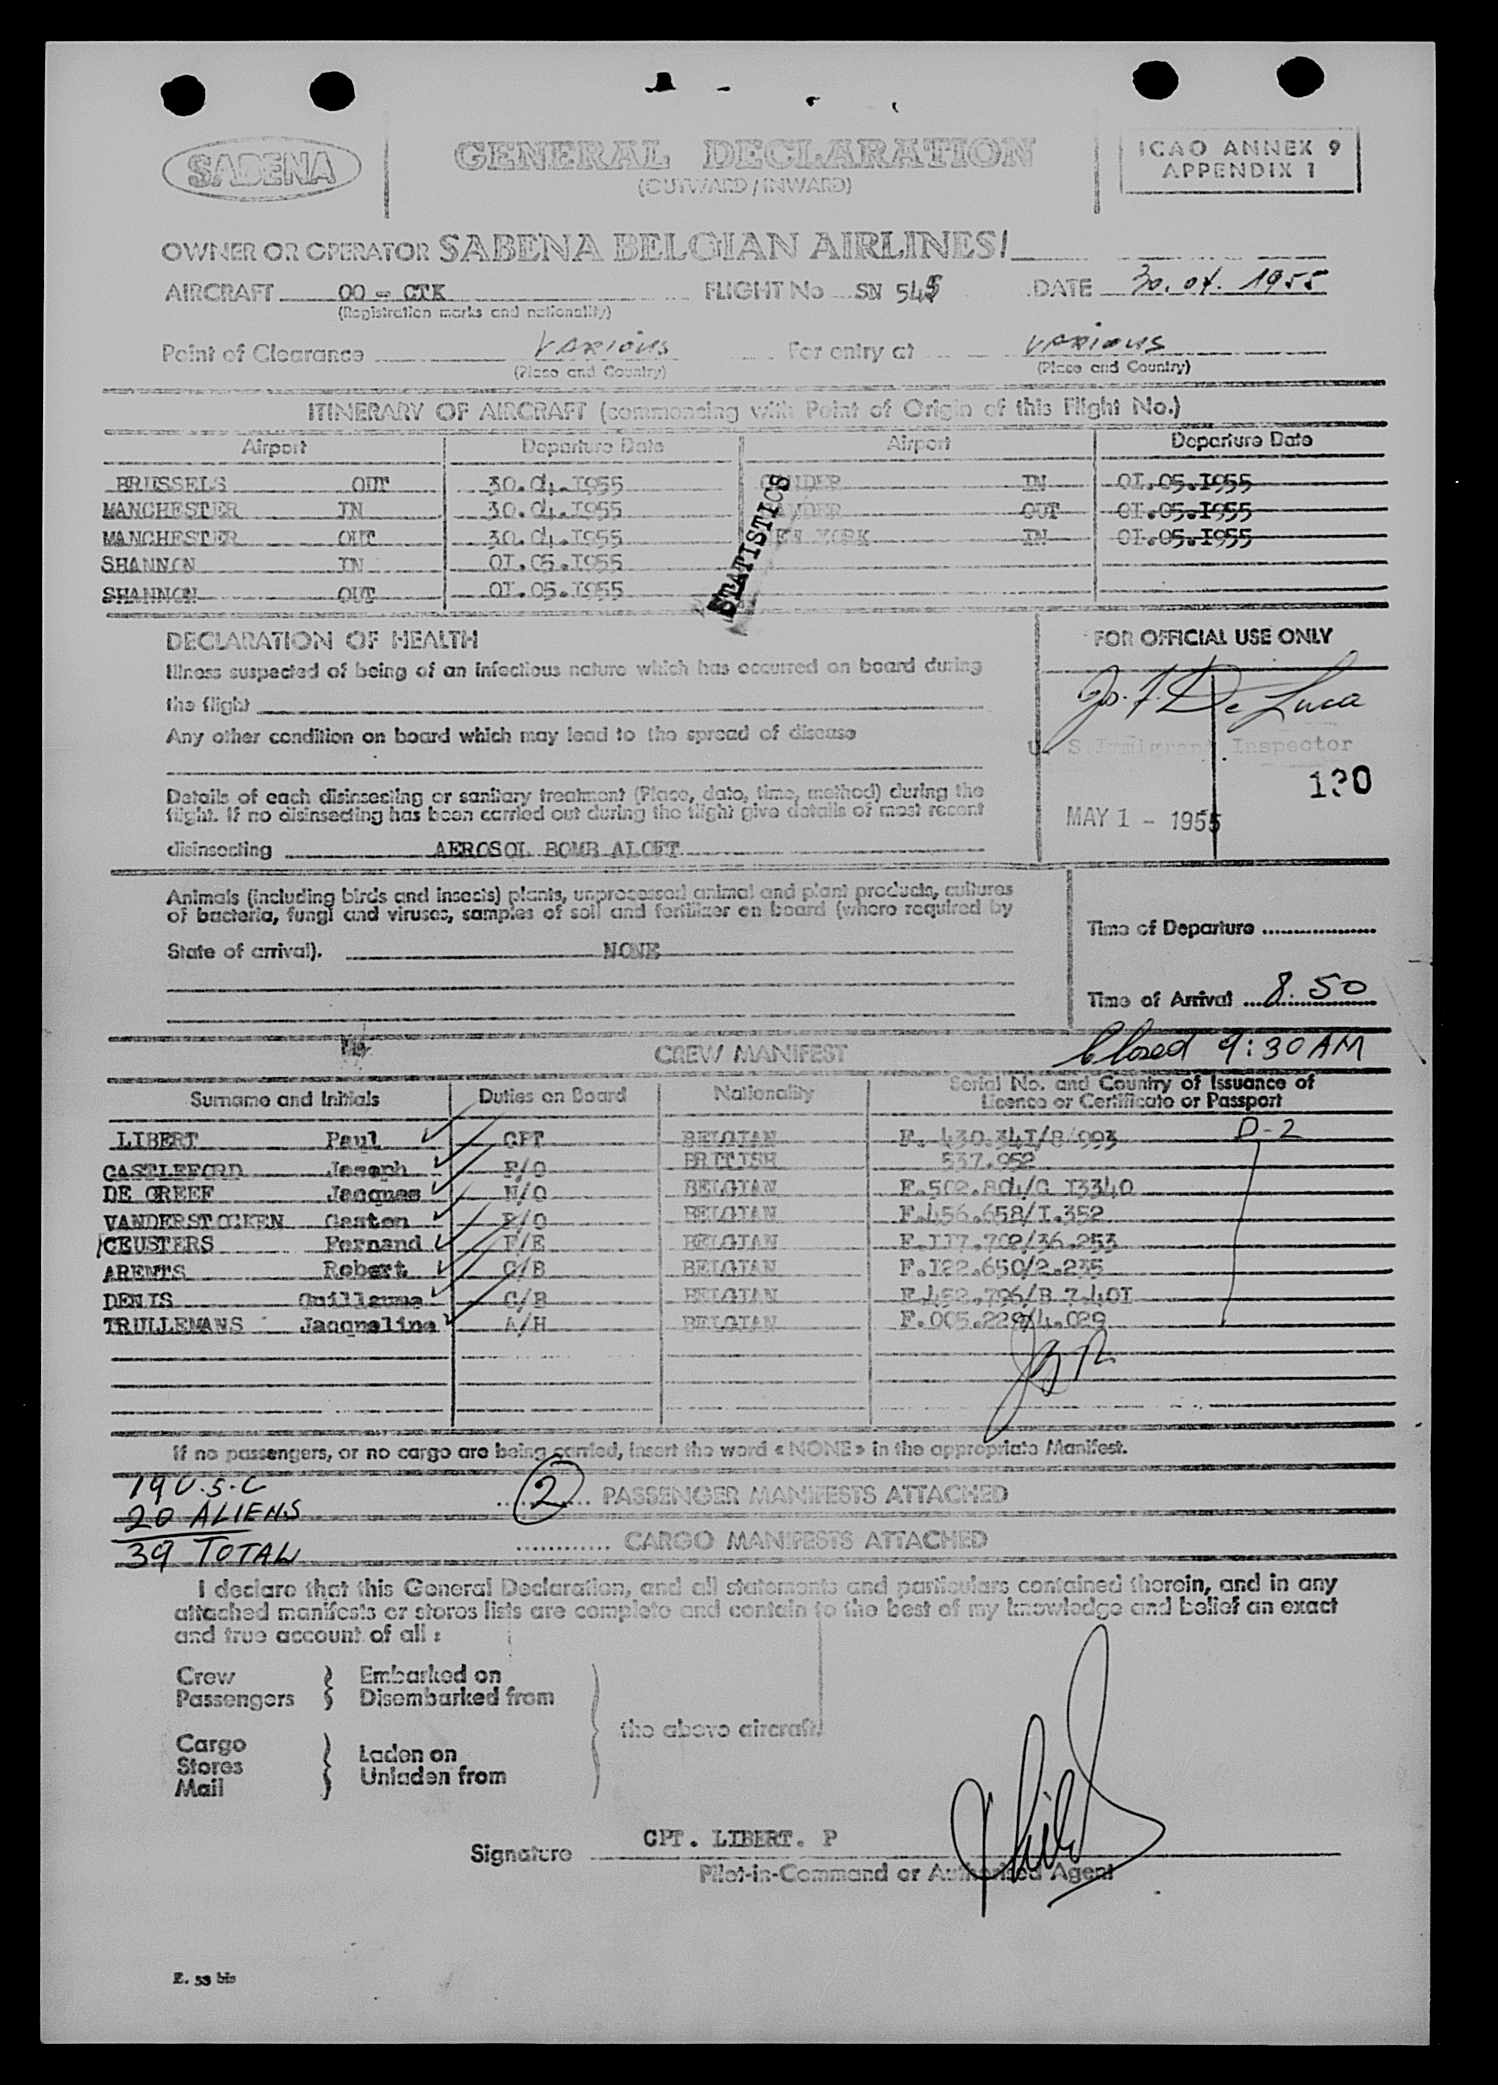 SABENA
GENERAL DECLARATION
(OUTWARD/INWARD)
ICAO ANNEX 9
APPENDIX 1
OWNER OR OPERATOR SABENA BELGIAN AIRLINES/
AIRCRAFT OO - CTK FLIGHT No SN 545 DATE 30.04.1955
(Registration marks and nationality)
Point of Clearance VARIOUS For entry at VARIOUS
(Place and Country) (Place and Country)
ITINERARY OF AIRCRAFT (commencing with Point of Origin of this Flight No.)
Airport Departure Date Airport Departure Date
BRUSSELS OUT 30.04.1955 GANDER IN 01.05.1955
MANCHESTER IN 30.04.1955 GANDER OUT 01.05.1955
MANCHESTER OUT 30.04.1955 NEW YORK IN 01.05.1955
SHANNON IN 01.05.1955
SHANNON OUT 01.05.1955
STATISTICS
DECLARATION OF HEALTH
Illness suspected of being of an infectious nature which has occurred on board during
the flight
Any other condition on board which may lead to the spread of disease
Details of each disinsecting or sanitary treatment (Place, date, time, method) during the
flight. If no disinsecting has been carried out during the flight give details of most recent
disinsecting AEROSOL BOMB ALOFT
FOR OFFICIAL USE ONLY
Jo. F. De Luca
U. S. Immigrant Inspector
130
MAY 1 - 1955
Animals (including birds and insects) plants, unprocessed animal and plant products, cultures
of bacteria, fungi and viruses, samples of soil and fertilizer on board (where required by
State of arrival). NONE
Time of Departure
Time of Arrival 8.50
Closed 9:30 AM
CREW MANIFEST
Surname and Initials Duties on Board Nationality Serial No. and Country of Issuance of
Licence or Certificate or Passport
LIBERT Paul CPT BELGIAN F. 430.341/8/993 D-2
CASTLEFORD Joseph F/O BRITISH 537.952
DE GREEF Jacques N/O BELGIAN F.502.804/G I3340
VANDERSTOCKEN Gaston R/O BELGIAN F.456.658/I.352
CEUSTERS Fernand F/E BELGIAN F.117.702/36.253
ARENTS Robert C/B BELGIAN F.122.650/2.235
DENIS Guillaume C/B BELGIAN F.452.796/B 7.40I
TRULLEMANS Jacqueline A/H BELGIAN F.005.229/4.029
If no passengers, or no cargo are being carried, insert the word « NONE » in the appropriate Manifest.
19 U.S.C
20 ALIENS
39 TOTAL
2 PASSENGER MANIFESTS ATTACHED
CARGO MANIFESTS ATTACHED
I declare that this General Declaration, and all statements and particulars contained therein, and in any
attached manifests or stores lists are complete and contain to the best of my knowledge and belief an exact
and true account of all :
Crew Embarked on
Passengers Disembarked from
the above aircraft.
Cargo
Stores Laden on
Mail Unladen from
Signature CPT. LIBERT. P
Pilot-in-Command or Authorised Agent
E. 53 bis